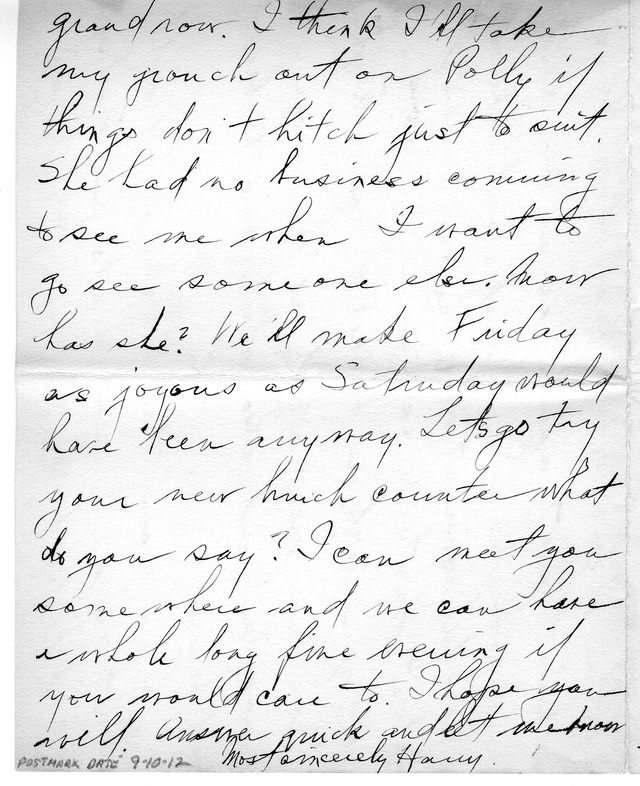 grand row. I think I'll take
my grouch out on Polly if
things don't hitch just to suit.
She had no business comming
to see me when I want to
go see someone else. Now
has she? We'll make Friday
as joyous as Satruday would
have been anyway. Lets go try
your new lunch counter what
do you say? I can meet you
somewhere and we can have
a whole long fine evening if
you would care to. I hope you
will. Answer quick and let me know
Most sincerely Harry.
POSTMARK DATE 9-10-12